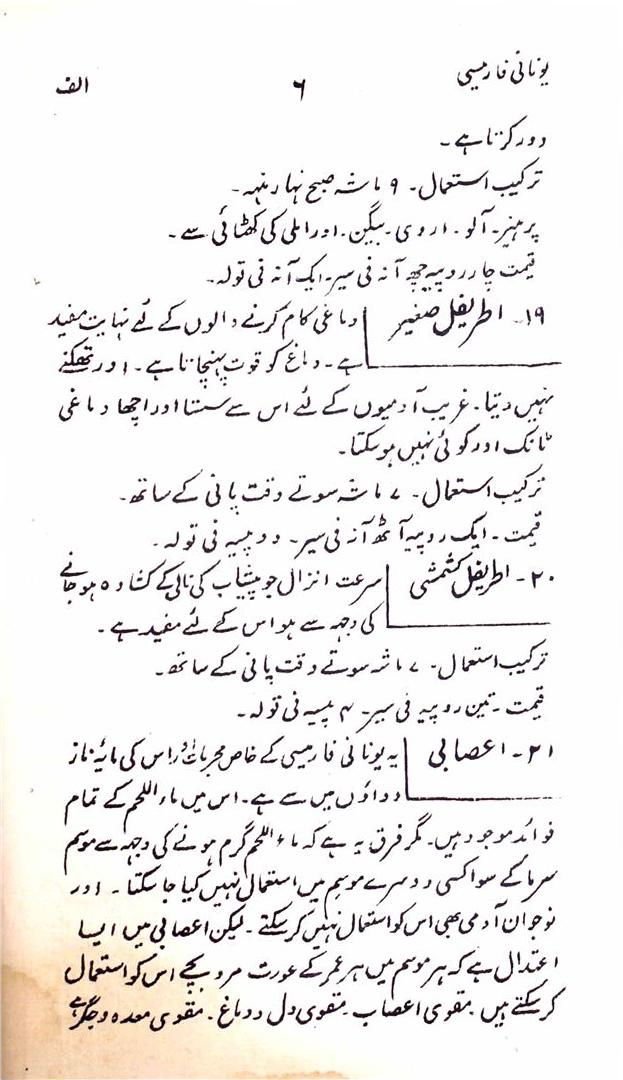 یونانی فارمیسی ۶ الف
دور کرتا ہے۔
ترکیب استعمال۔ ۹ ماشہ صبح نہار منہہ۔
پرہیز۔ آلو۔ اروی۔ بیگن۔ اور املی کی کھٹائی سے۔
قیمت چار روپیہ چھ آنہ فی سیر۔ ایک آنہ فی تولہ۔
۱۹۔ اطریفل صغیر دماغی کام کرنے والوں کے لئے نہایت مفید
ہے۔ دماغ کو قوت پہنچاتا ہے۔ اور تھکنے
نہیں دیتا۔ غریب آدمیوں کے لئے اس سے سستا اور اچھا دماغی
ٹانک اور کوئی نہیں ہو سکتا۔
ترکیب استعمال۔ ۷ ماشہ سوتے وقت پانی کے ساتھ۔
قیمت۔ ایک روپیہ آٹھ آنہ فی سیر۔ دو پیسہ فی تولہ۔
۲۰۔ اطریفل کشمشی سرعت انزال جو پیشاب کی نالی کے کشادہ ہو جانے
کی وجہہ سے ہو اس کے لئے مفید ہے۔
ترکیب استعمال۔ ۷ ماشہ سوتے وقت پانی کے ساتھ۔
قیمت۔ تین روپیہ فی سیر۔ ۴ پیسہ فی تولہ۔
۲۱۔ اعصابی یہ یونانی فارمیسی کے خاص مجربات اور اس کی مایۂ ناز
دواؤں میں سے ہے۔ اس میں ماء اللحم کے تمام
فوائد موجود ہیں۔ مگر فرق یہ ہے کہ ماء اللحم گرم ہونے کی وجہہ سے موسم
سرما کے سوا کسی دوسرے موسم میں استعمال نہیں کیا جا سکتا۔ اور
نوجوان آدمی بھی اس کو استعمال نہیں کر سکتے۔ لیکن اعصابی میں ایسا
اعتدال ہے کہ ہر موسم میں ہر عمر کے عورت مرد بچے اس کو استعمال
کر سکتے ہیں۔ مقوی اعصاب۔ مقوی دل و دماغ۔ مقوی معدہ و جگر ہے